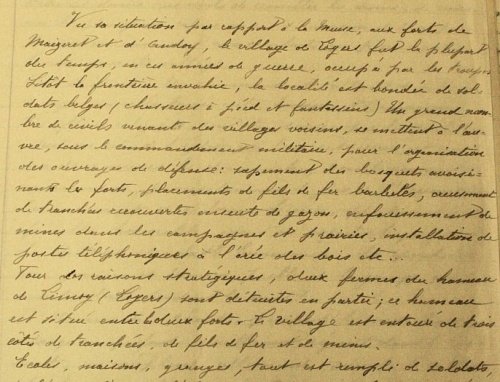 Vu sa situation par rapport à la Meuse, aux forts de
Maizeret et d'Andoy, le village de Loyers fut la plupart
des temps, en ces années de guerre, occupé par les troupes
Sitôt la frontière envahie, la localité est bondée de sol-
dats belges (chasseurs à pied et fantassins) Un grand nom-
bre de civils venant des villages voisins, se mettent à l'œu-
vre, sous le commandement militaire, pour l'organisation
des ouvrages de défense: sapement des bosquets avoisi-
nants les forts, placements de fils de fer barbelés, creusement
de tranchées recouvertes ensuite de gazon, enfouissement de
mines dans les campagnes et prairies, installation de
postes téléphoniques à l'orée des bois etc...
Pour des raisons stratégiques, deux fermes du hameau
de Limoy (Loyers) sont détruites en partie; ce hameau
est situé entre deux forts. Le village est entouré de trois
côtés de tranchées, de fils de fer et de mines.
Ecoles, maisons, granges, tout est rempli de soldats,